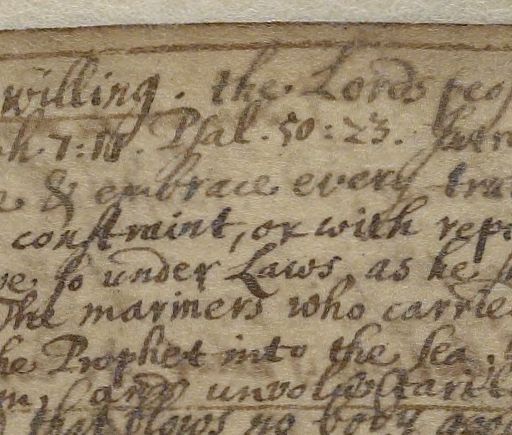 willing. the Lords peop
h. 7:11. Psal. 50:23.
e & embrace every tru
constraint, or with repe
ve so under Laws, as he
The mariners who carrie
he Prophet into the sea,
m, and unvoluntarily
that blows no body good